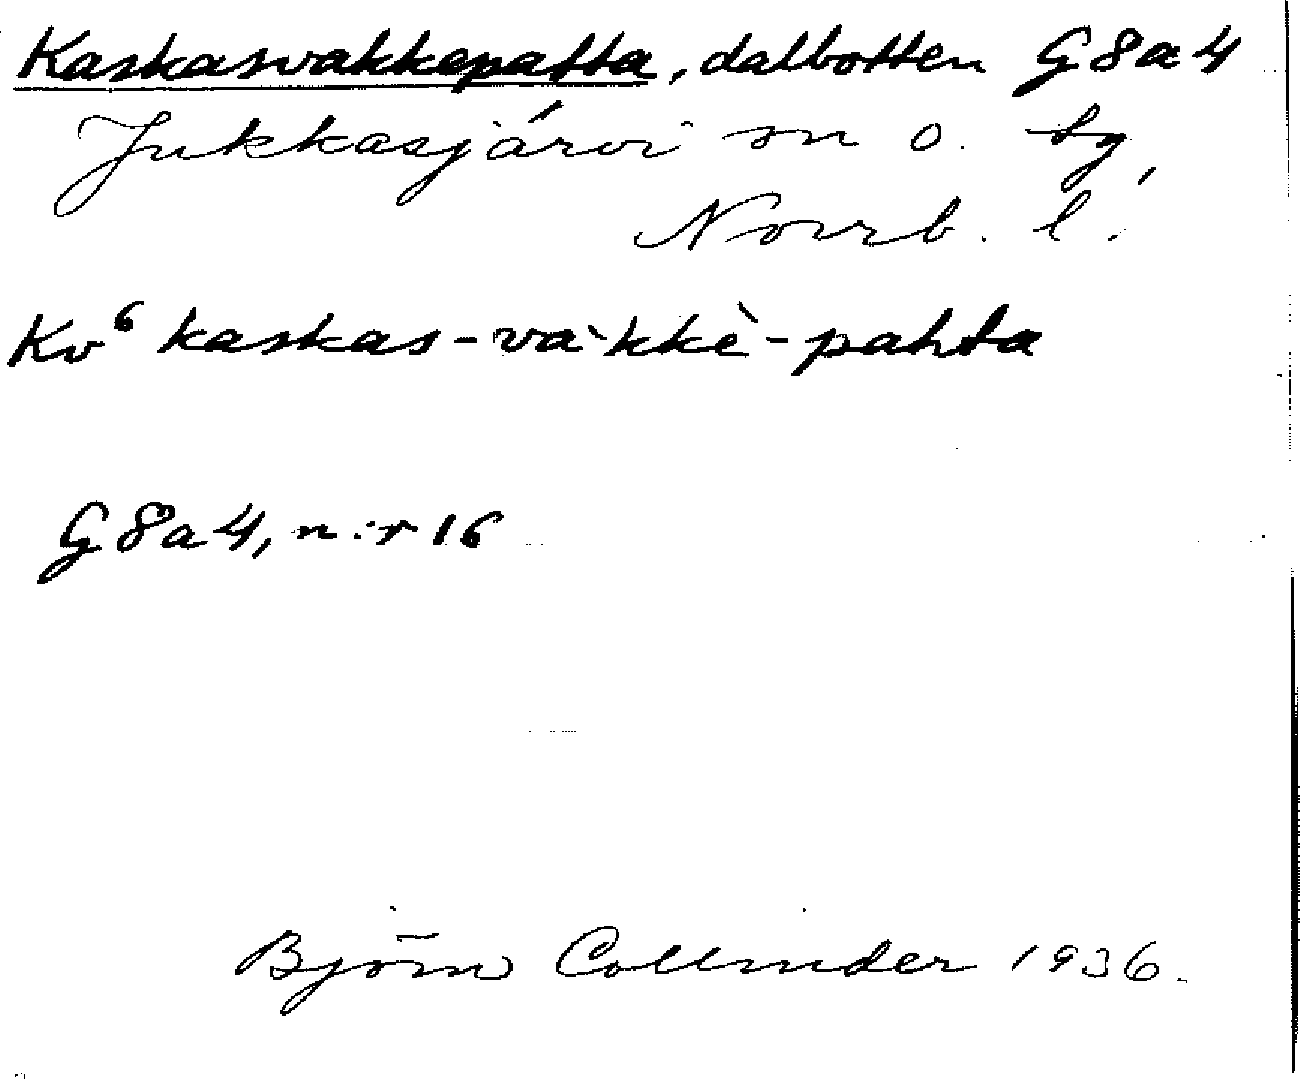 Kaskasvakkepatta, dalbotten G8a4
Jukkasjärvi sn o. tg,
Norrb. l.
Kv⁶ kaskas-va`kkè-pahta
G8a4, n:r 16
Björn Collinder 1936.